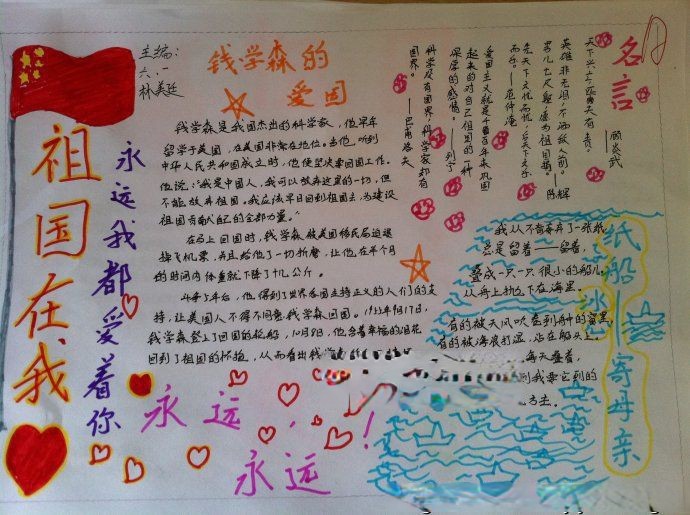 祖国在我
永远我都爱着你
主编:
六.一
林美廷
钱学森的
爱国
钱学森是我国杰出的科学家,他早年
留学于美国,在美国非常有地位。当他,听到
中华人民共和国成立时,他便坚决要回国工作。
他说:“我是中国人,我可以放弃这里的一切,但
不能放弃祖国。我应该早日回到祖国去,为建设
祖国贡献自己的全部力量。”
在马上回国时,钱学森被美国移民局迫退
掉飞机票,并且给他了一切折磨,让他在半个月
的时间内体重就下降了十几公斤。
5年后,他得到了世界各国主持正义的人们的支
持,让美国人不得不同意钱学森回国。1955年9月17日,
钱学森登上了回国的轮船,10月8日,他含着幸福的泪花
回到了祖国的怀抱,从而看出钱学
永远,
永远!
名言
天下兴亡,匹夫有责。
——顾炎武
英雄非无泪,不洒敌人前。
男儿七尺躯,愿为祖国捐。
——陈辉
先天下之忧而忧,后天下之乐
而乐。——范仲淹
爱国主义就是千百年来巩固
起来的对自己祖国的一种
深厚的感情。——列宁
科学没有国界,科学家却有
国界。——巴甫洛夫
纸船——寄母亲
冰心
我从不肯妄弃了一张纸,
总是留着——留着,
叠成一只一只很小的船儿,
从舟上抛下在海里。
有的被天风吹卷到舟中的窗里,
有的被海浪打湿,沾在船头上。
每天叠着,
到我要它到的
方去。